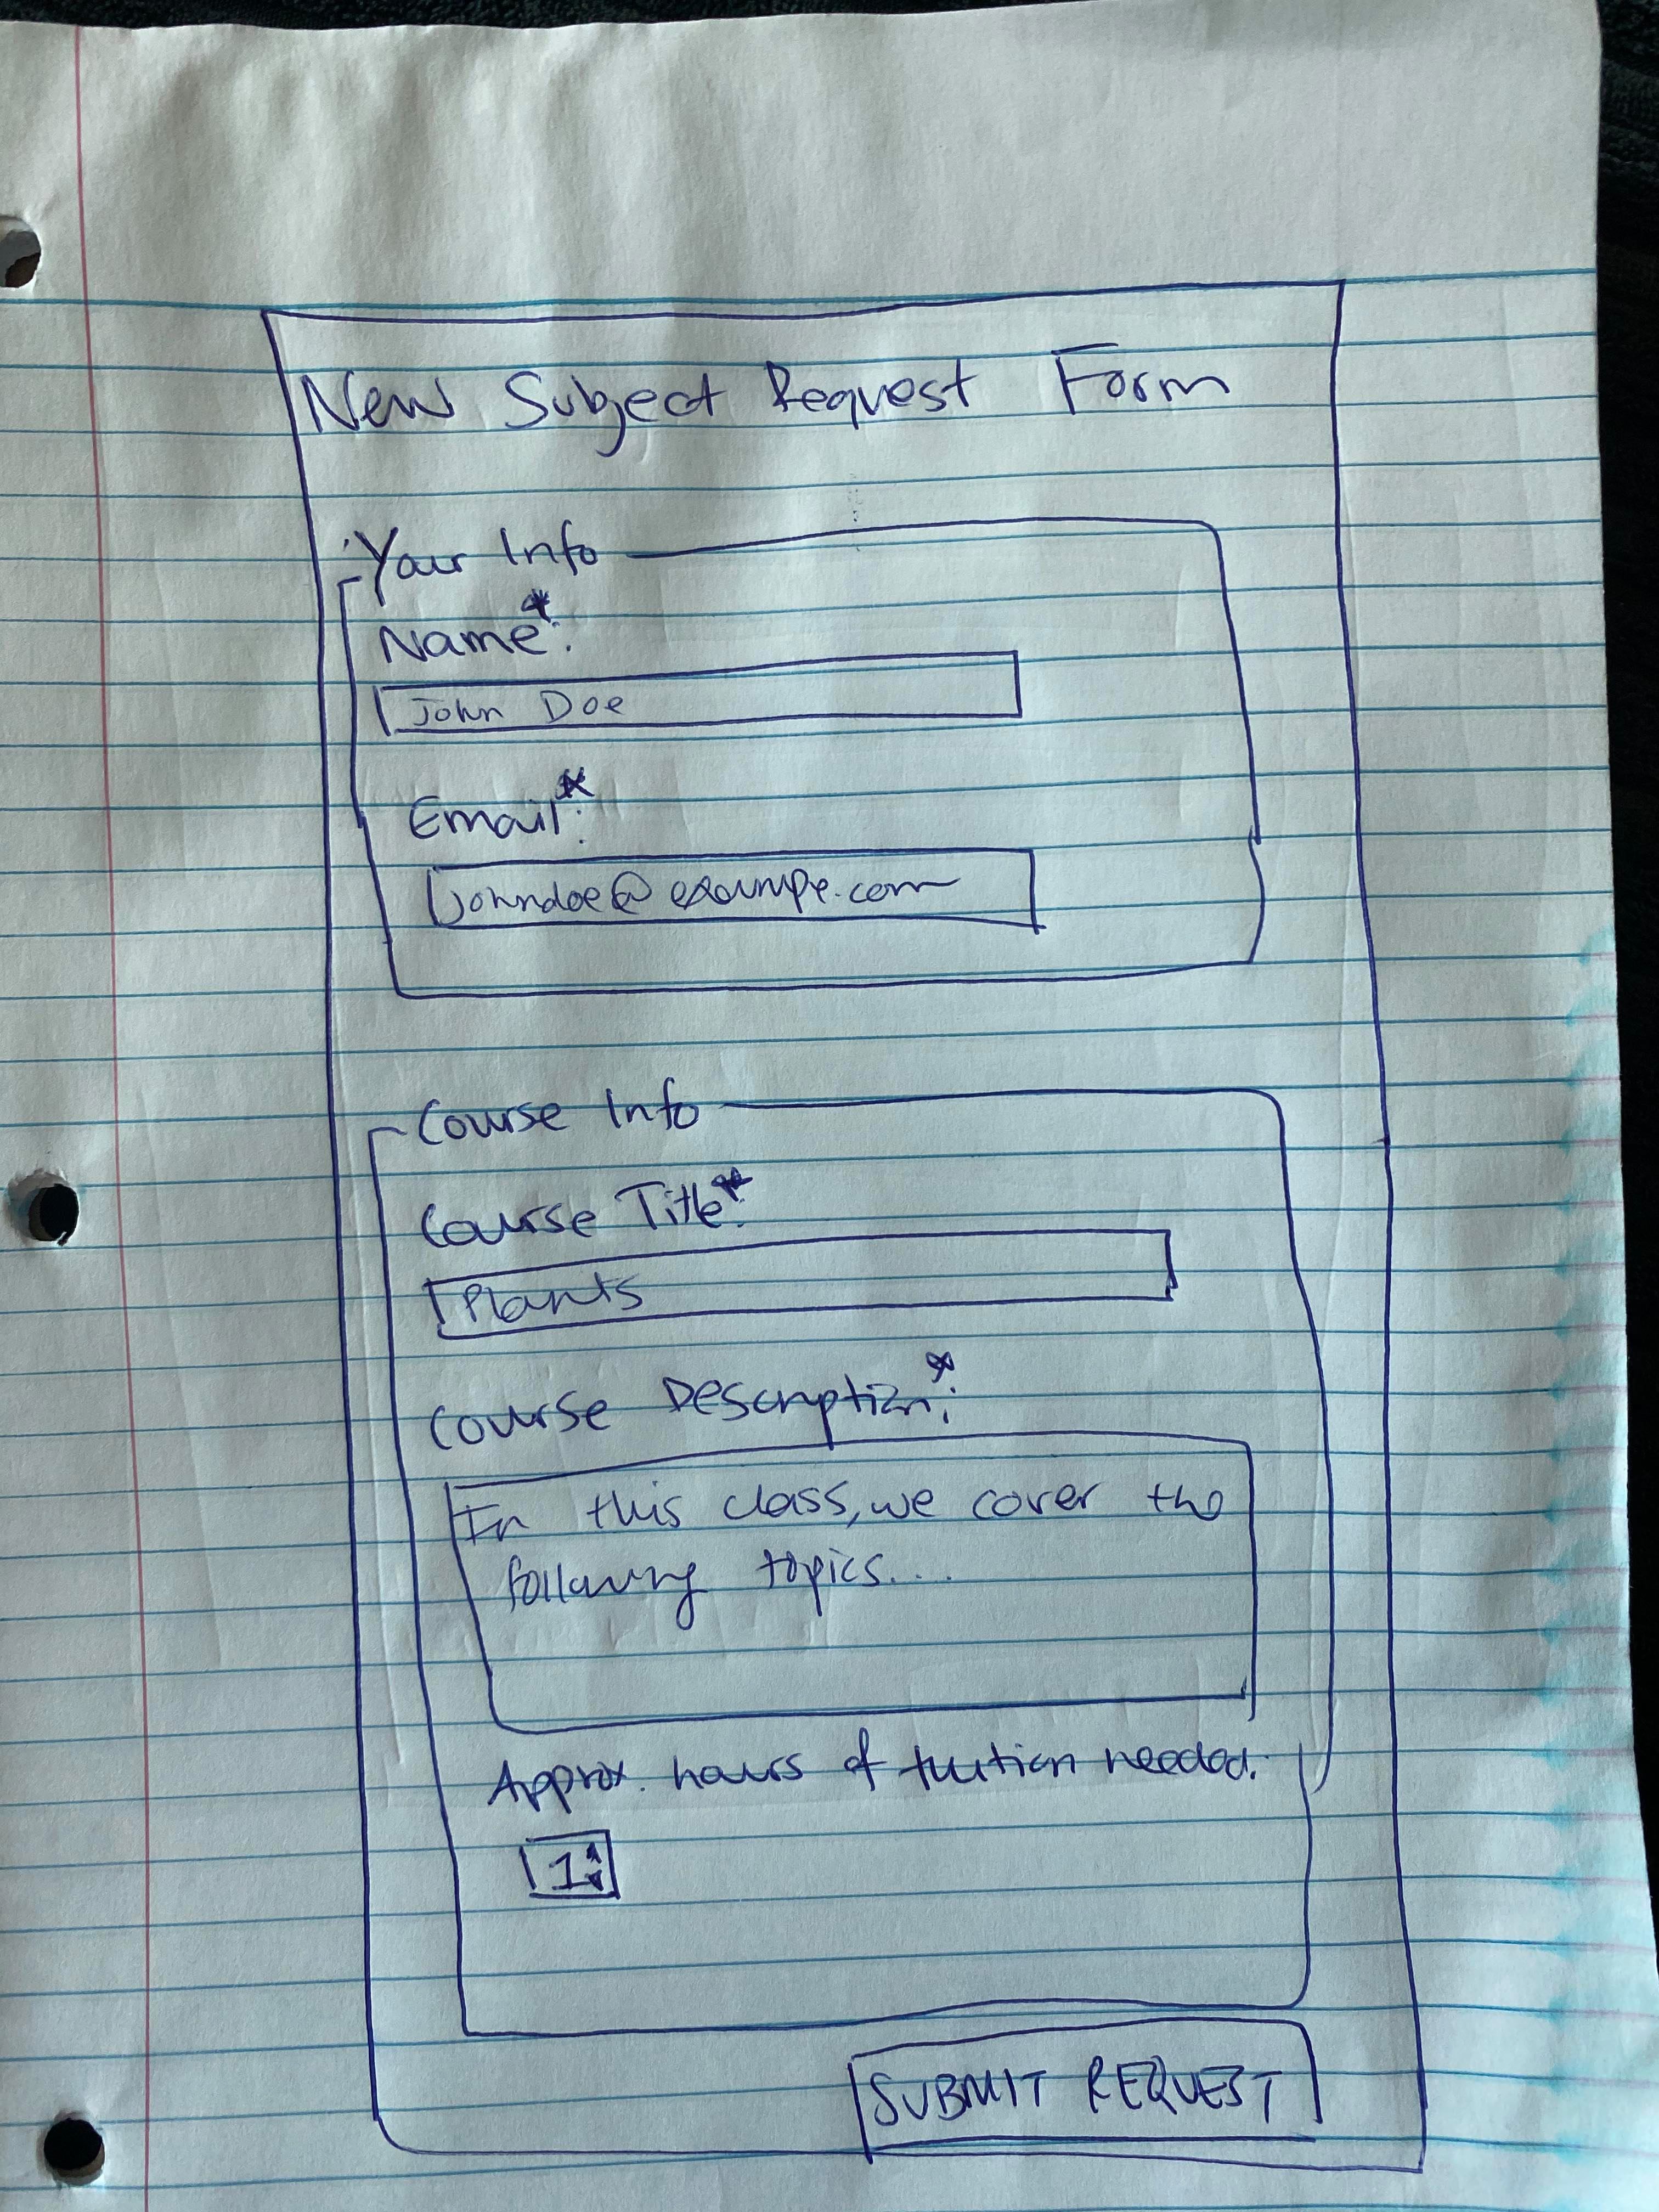 New Subject Request Form
Your Info
Name*:
John Doe
Email*:
johndoe@exampe.com
Course Info
Course Title*:
Plants
Course Description*:
In this class, we cover the
following topics....
Approx. hours of tuition needed:
1
SUBMIT REQUEST